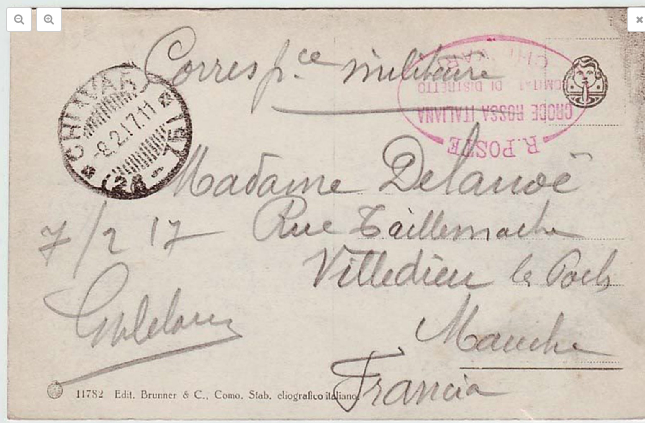 Corresp.ce militaire
R. POSTE
CROCE ROSSA ITALIANA
COMIT DI DISTRETTO
CHIAVARI
CHIAVARI
8.2.17.11
Madame Delanoë
7/2 17
Rue Taillemache
Villedieu les Poëls
Manche
Francia
11782 Edit. Brunner & C., Como. Stab. eliografico italiano.